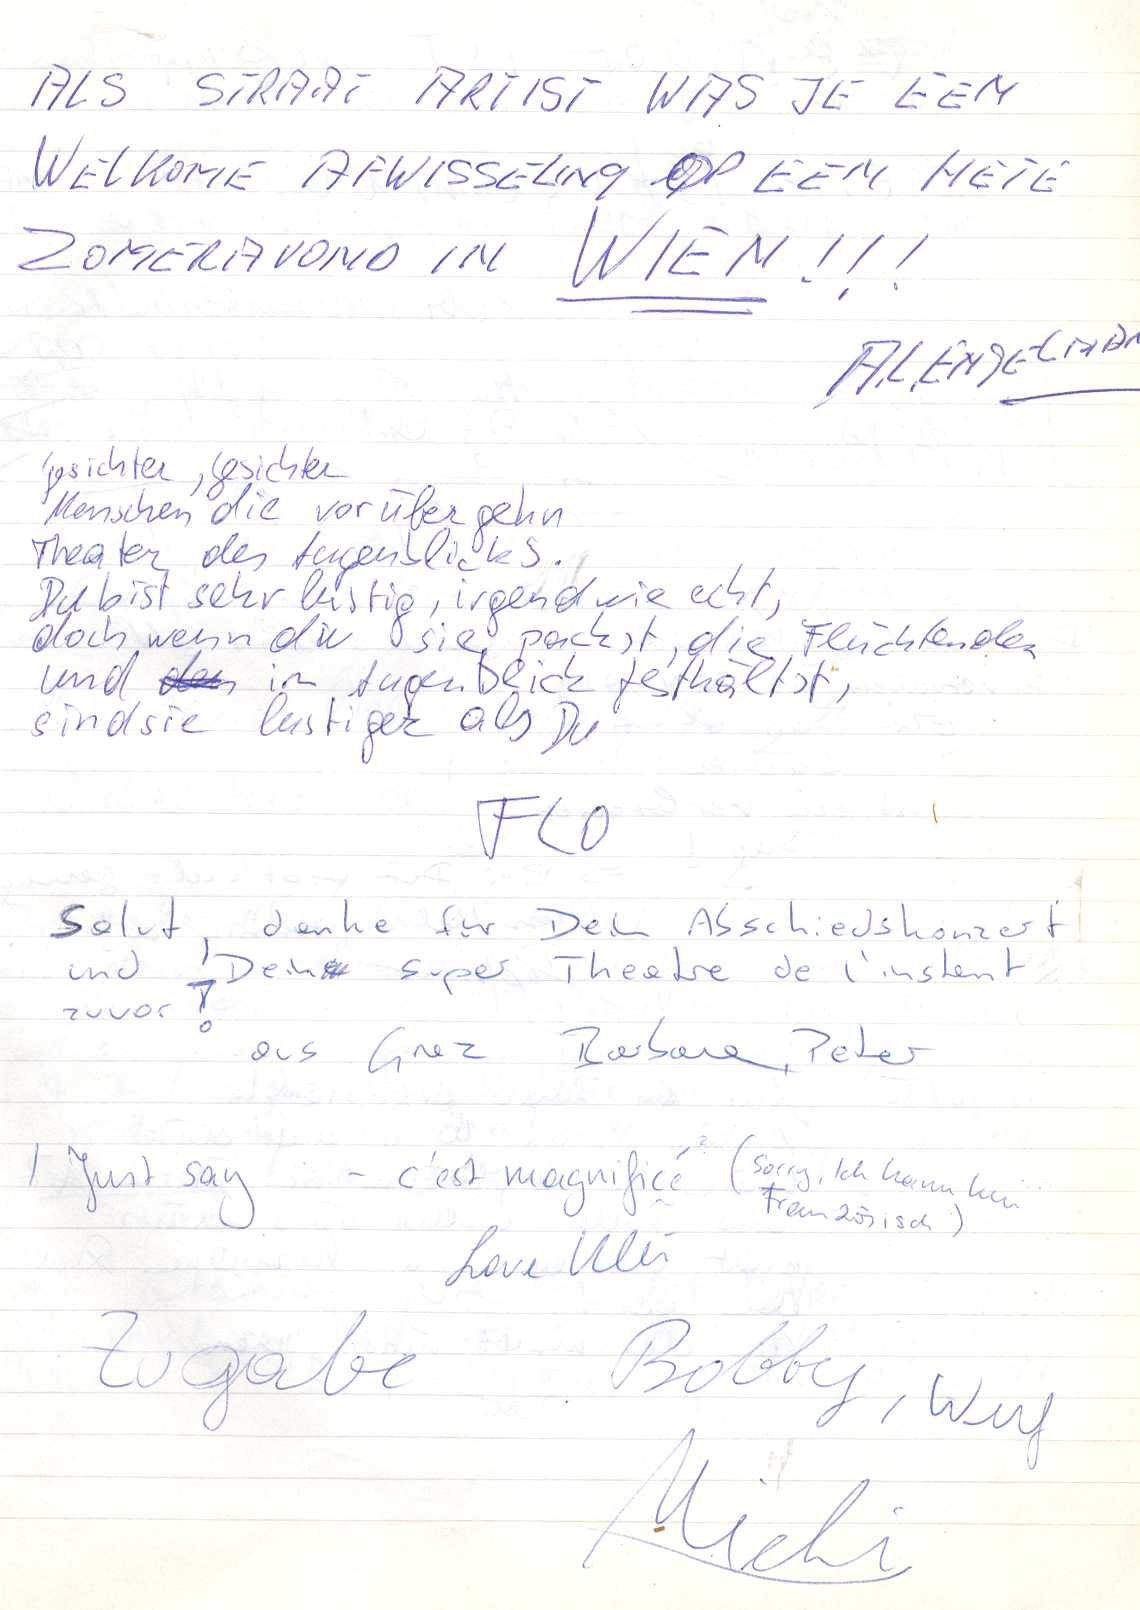 ALS STRAAT ARTIST WAS JE EEN
WELKOME AFWISSELING OP EEN HETE
ZOMERAVOND IN WIEN!!!
Gesichter, Gesichter
Menschen die vorübergehn
Theater des Augenblicks.
Du bist sehr lustig, irgendwie echt,
doch wenn du sie packst, die Flüchtenden
und im Augenblick festhältst,
sind sie lustiger als Du
FLO
Salut, danke für Dein Abschiedskonzert
und Dein super Theatre de l'instant
zuvor!
aus Graz Barbara, Peter
I Just say - c'est magnificé? (Sorry, Ich kann kein
Französisch)
Love Ulli
Zugabe Bobby,
Michi